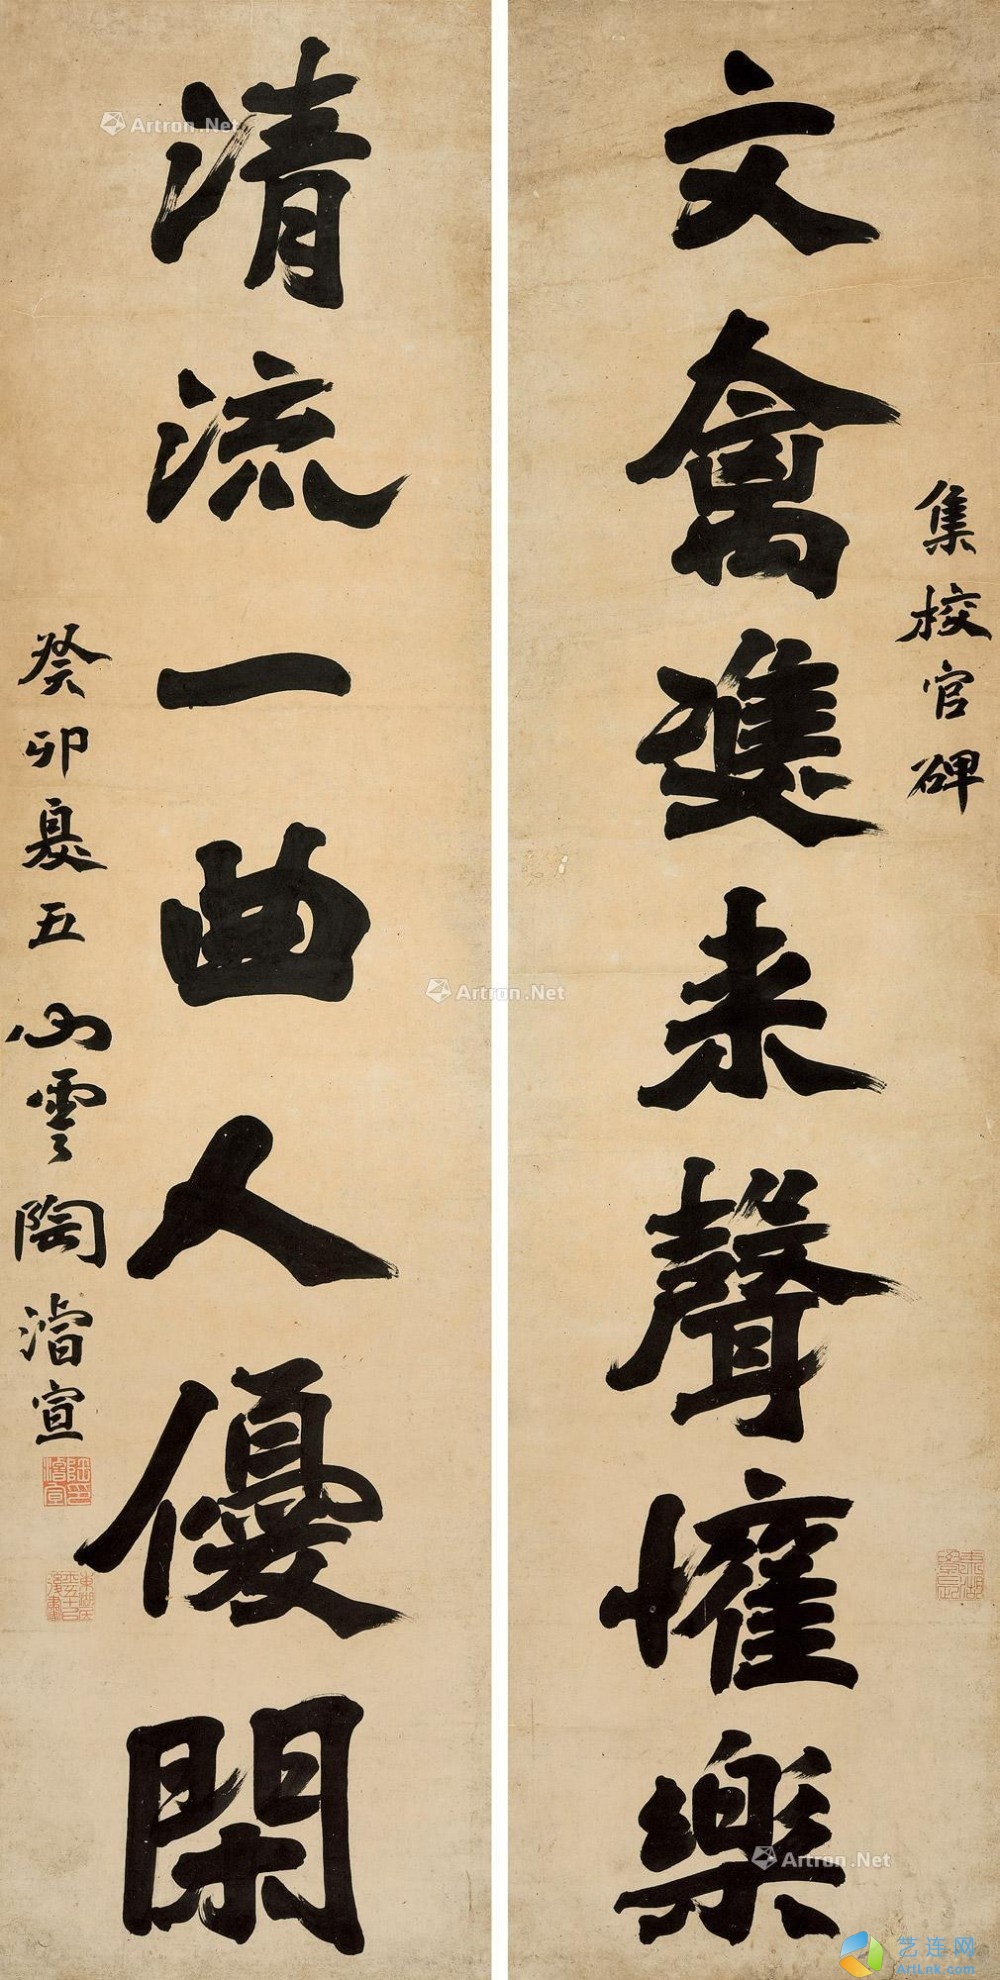 集校官碑
文禽雙来聲懽樂
清流一曲人優閑
癸卯夏五心雲陶濬宣
Artron.Net
Artron.Net
Artron.Net
艺连网
ArtLnk.com